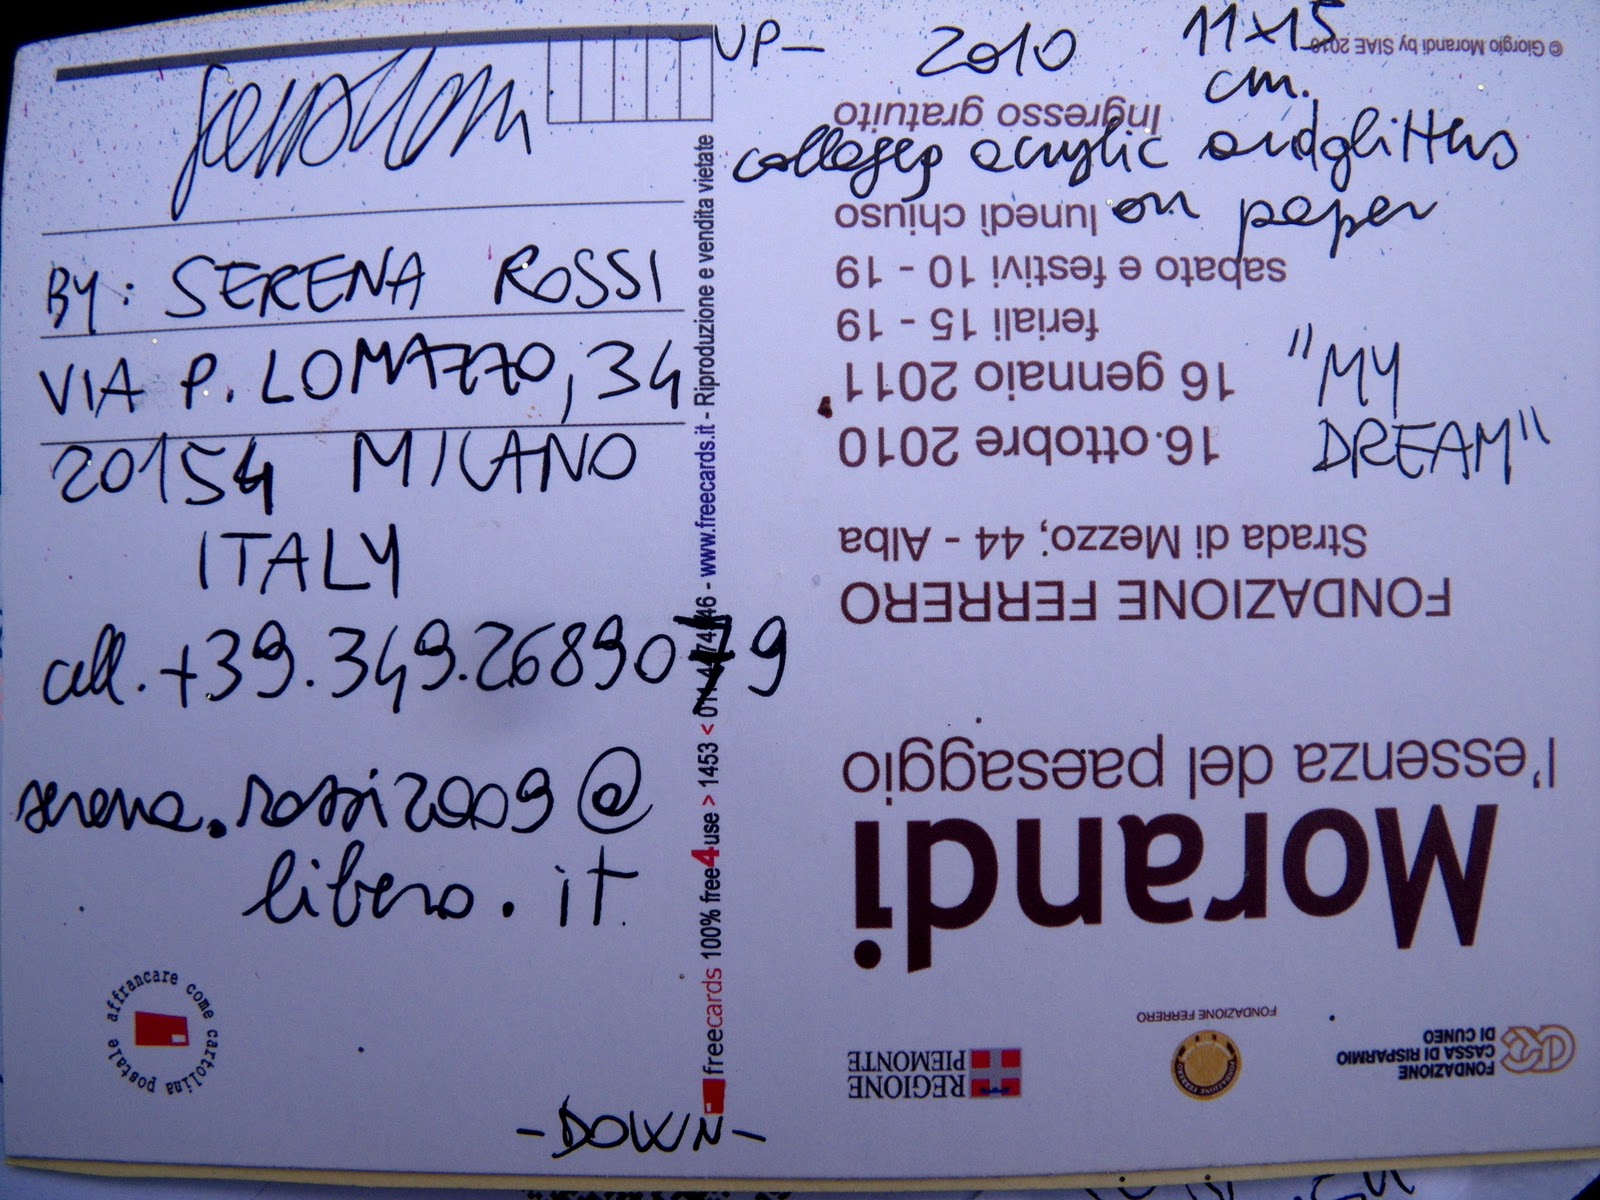 -UP-
2010
11x15
cm.
collages acrylic and glitters
on paper
"MY
DREAM"
BY: SERENA ROSSI
VIA P. LOMAZZO, 34
20154 MILANO
ITALY
cell. +39.349.2689079
serena.rossi2009@
libero.it
-DOWN-
affrancare come cartolina postale
freecards 100% free4use > 1453 < 011 - www.freecards.it - Riproduzione e vendita vietate
Morandi
l'essenza del paesaggio
FONDAZIONE FERRERO
Strada di Mezzo, 44 - Alba
16 ottobre 2010
16 gennaio 2011
feriali 15 - 19
sabato e festivi 10 - 19
lunedì chiuso
Ingresso gratuito
© Giorgio Morandi by SIAE 2010
FONDAZIONE
CASSA DI RISPARMIO
DI CUNEO
FONDAZIONE FERRERO
REGIONE
PIEMONTE